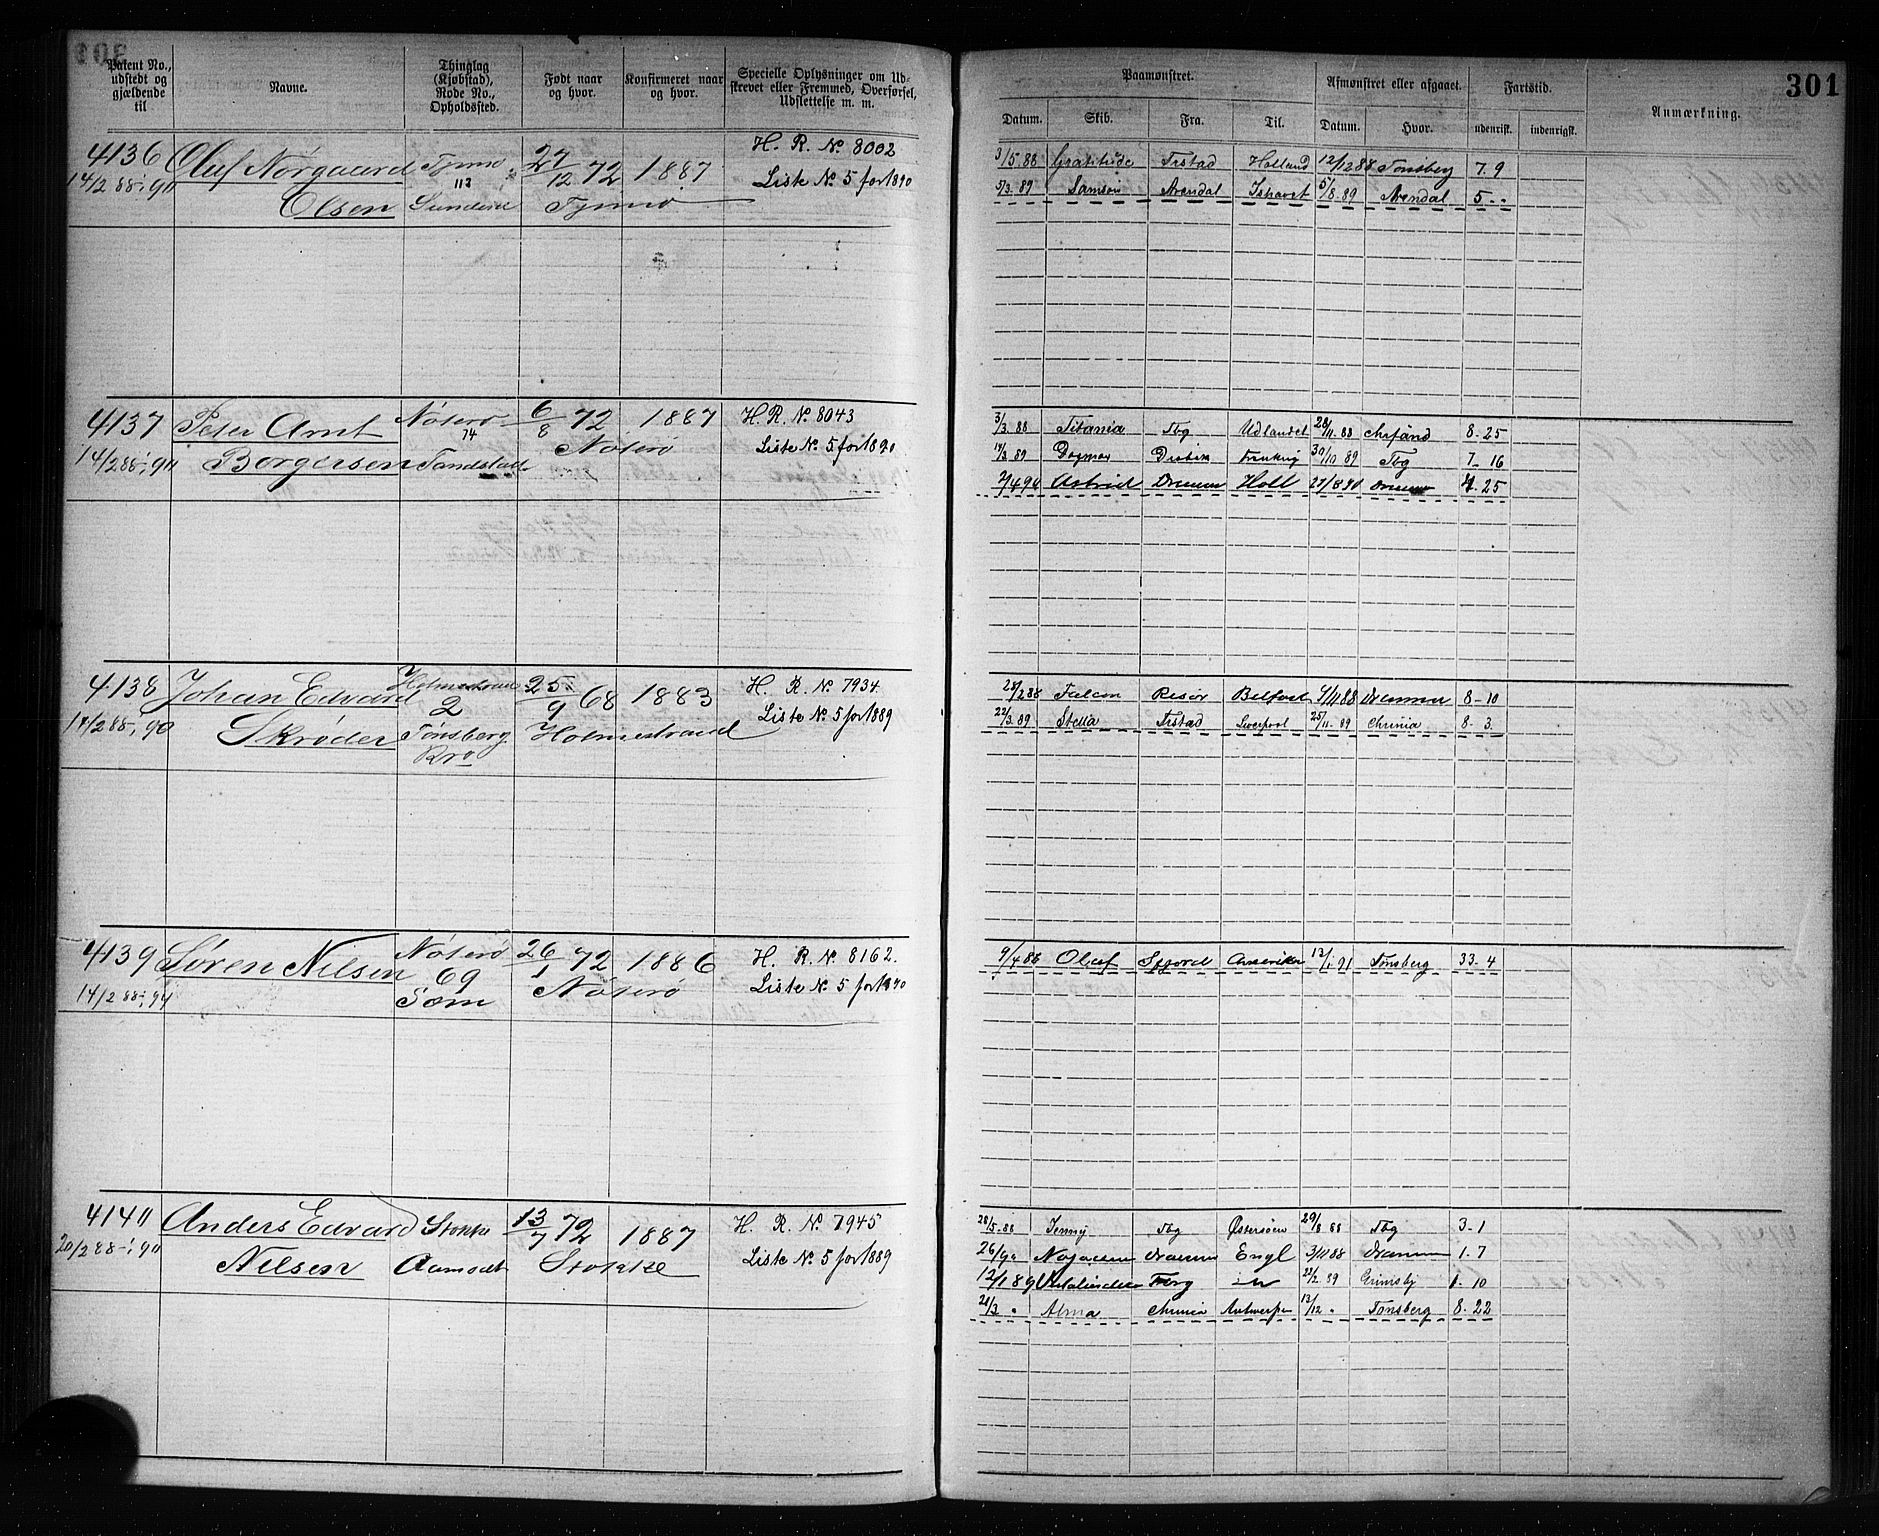 301
Patent No., udstedt og gjældende til
Navne.
Thinglag (Kjøbstad), Rode No., Opholdssted.
Født naar og hvor.
Konfirmeret naar og hvor.
Specielle Oplysninger om Udskrevet eller Fremmed, Overførsel, Udslettelse m. m.
Paamønstret.
Afmønstret eller afgaaet.
Fartstid.
Anmærkning.
Datum. Skib. Fra. Til. Datum. Hvor. udenrigsk. indenrigsk.
4136 Oluf Nørgaard 27/12 72 1887 H. R. No 8002
14/2 88 Olsen 113 Liste No. 5 for 1890
3/5 88 Gratitude Frstad Holland 12/12 88 Tønsberg 7. 9
5/3. 89 Samson Arendal Ishavet 5/8. 89 Arendal 5 - "
4137 Peter Arnt Nøterø 6/8 72 1887 H. R. No. 8043
14/2 88 Borgersen 74 Nøterø Liste No. 5 for 1890
3/3. 88 Titania Tbg Udlandet 28/11. 88 8 - 25
14/3. 89 Dagmar 30/10 89 Tbg 7 - 16
Astrid Holl 25
4138 Johan Edvard Holmestrand 25/9 68 1883 H. R. No. 7934
14/2 88 Skrøder 2 Tønsberg Holmestrand Liste No 5 for 1889
28/2 88 Falcon Risør Belfast 88 Drammen 8 - 10
22/3. 89 Stella Frstad Liverpool 25/11. 89 Chrinia 8 - 3.
4139 Søren Nilsen Nøterø 26/1 72 1886 H. R. No. 8162.
14/2 88 69 Sæm Nøterø Liste No. 5 for 1890
9/4 88 Olaf Amerika 13/1. 91 Tønsberg 33. 4
4140 Anders Edvard Stokke 13/7 72 1887 H. R. No. 7945
20/2 88 Nilsen Aamodt Stokke Liste No. 5 for 1889
28/5 - 88 Jenny Tbg Østersøen 29/8 88 Tbg 3 - 1
Dramm Engl 3/11 88 Dramm 1. 7
12/1 89 22/2. 89 Grimsby 1 - 10
21/3 " Alma Chrinia Antwerpen 13/12 " Tønsberg 8 - 22